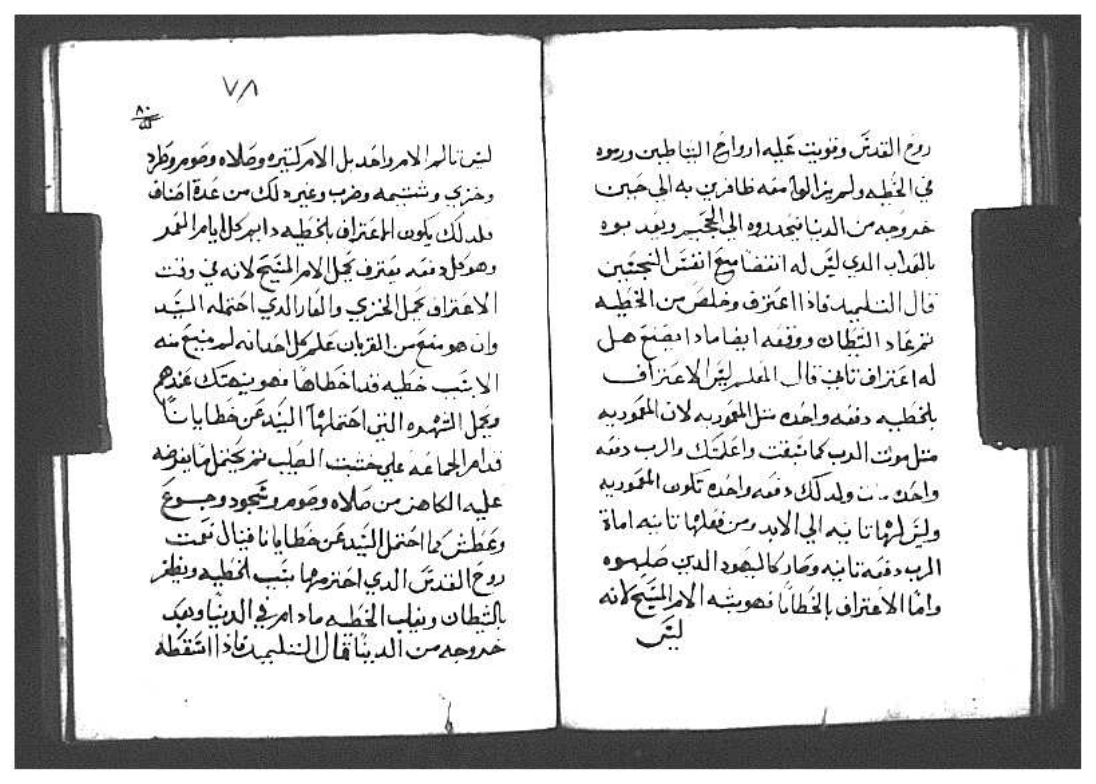 روح القدس وقويت عليه ارواح الشياطين ورموه
في الخطيه ولم يزالوا معه ظافرين به الي حين
خروجه من الدنيا فيحدروه الي الجحيم ويعدبوه
بالعداب الدي ليس له انقضا مع انفس النجسين
قال التلميد فادا اعترف وخلص من الخطيه
تم عاد الشيطان ووقعه ايضا مادا يصنع هل
له اعتراف تاني قال المعلم ليس الاعتراف
بالخطيه دفعه واحده متل المعموديه لان المعموديه
متل موت الرب كما سبقت واعلمتك والرب دفعه
واحده مات ولدلك دفعه واحده تكون المعموديه
وليس لها تانيه الي الابد ومن فعلها تانيه امات
الرب دفعه تانيه وصار كاليهود الدين صلبوه
واما الاعتراف بالخطايا فهو يشبه الام المسيح لانه
ليس
٧٨
٨٠
ليس تالم الام واحد بل الام كتيره وصلاه وصوم وطرد
وخزي وشتيمه وضرب وغير دلك من عدة اصناف
فلدلك يكون الاعتراف بالخطيه دايم كل ايام العمر
وهو كل دفعه يعترف يحمل الام المسيح لانه في وقت
الاعتراف يحمل الخزي والعار الدي احتمله السيد
وان هو منع من القربان علم كل احد انه لم يمنع منه
الا بسبب خطيه قد اخطاها فهو ينهتك عندهم
ويحمل الشهره التي احتملها السيد عن خطايانا
قدام الجماعه علي خشبت الصليب تم يحتمل ما يفرضه
عليه الكاهن من صلاه وصوم وسجود وجوع
وعطش كما احتمل السيد عن خطايانا فينال نعمت
روح القدس الدي احترمها بسبب الخطيه ويظفر
بالشيطان ويغلب الخطيه مادام في الدنيا وبعد
خروجه من الدنيا قال التلميد فادا اسقطه